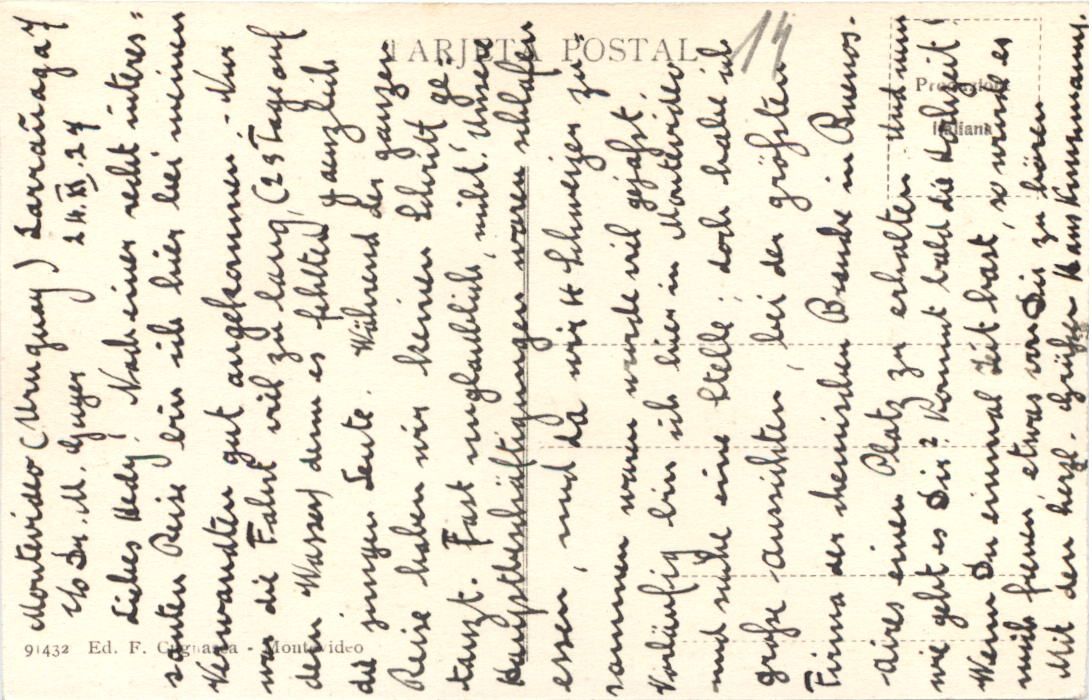 TARJETA POSTAL
14
Produzione
Italiana
91432 Ed. F. Cugnasca - Montevideo
Montevideo (Uruguay) Larrañaga 7
c/o Dr. M. Guyer 24.XI.27
Liebes Hedy! Nach einer recht interes=
santen Reise bin ich hier bei meinen
Verwandten gut angekommen. Nur
war die Fahrt viel zu lang, (23 Tage auf
dem Wasser) denn es fehlten gänzlich
die jungen Leute. Während der ganzen
Reise haben wir keinen Schritt ge-
tanzt. Fast unglaublich, nicht! Unsere
Hauptbeschäftigungen waren schlafen
essen, und da wir 4 Schweizer zu-
sammen waren wurde viel gejasst.
Vorläufig bin ich hier in Montevideo
und suche eine Stelle, doch habe ich
grosse Aussichten, bei der grössten
Firma der chemischen Branche in Buenos-
Aires einen Platz zu erhalten. Und nun
wie geht es Dir? Kommt bald die Hochzeit!
Wenn Du einmal Zeit hast, so würde es
mich freuen etwas von Dir zu hören
Mit den herzl. Grüssen Hans Kunzmann.